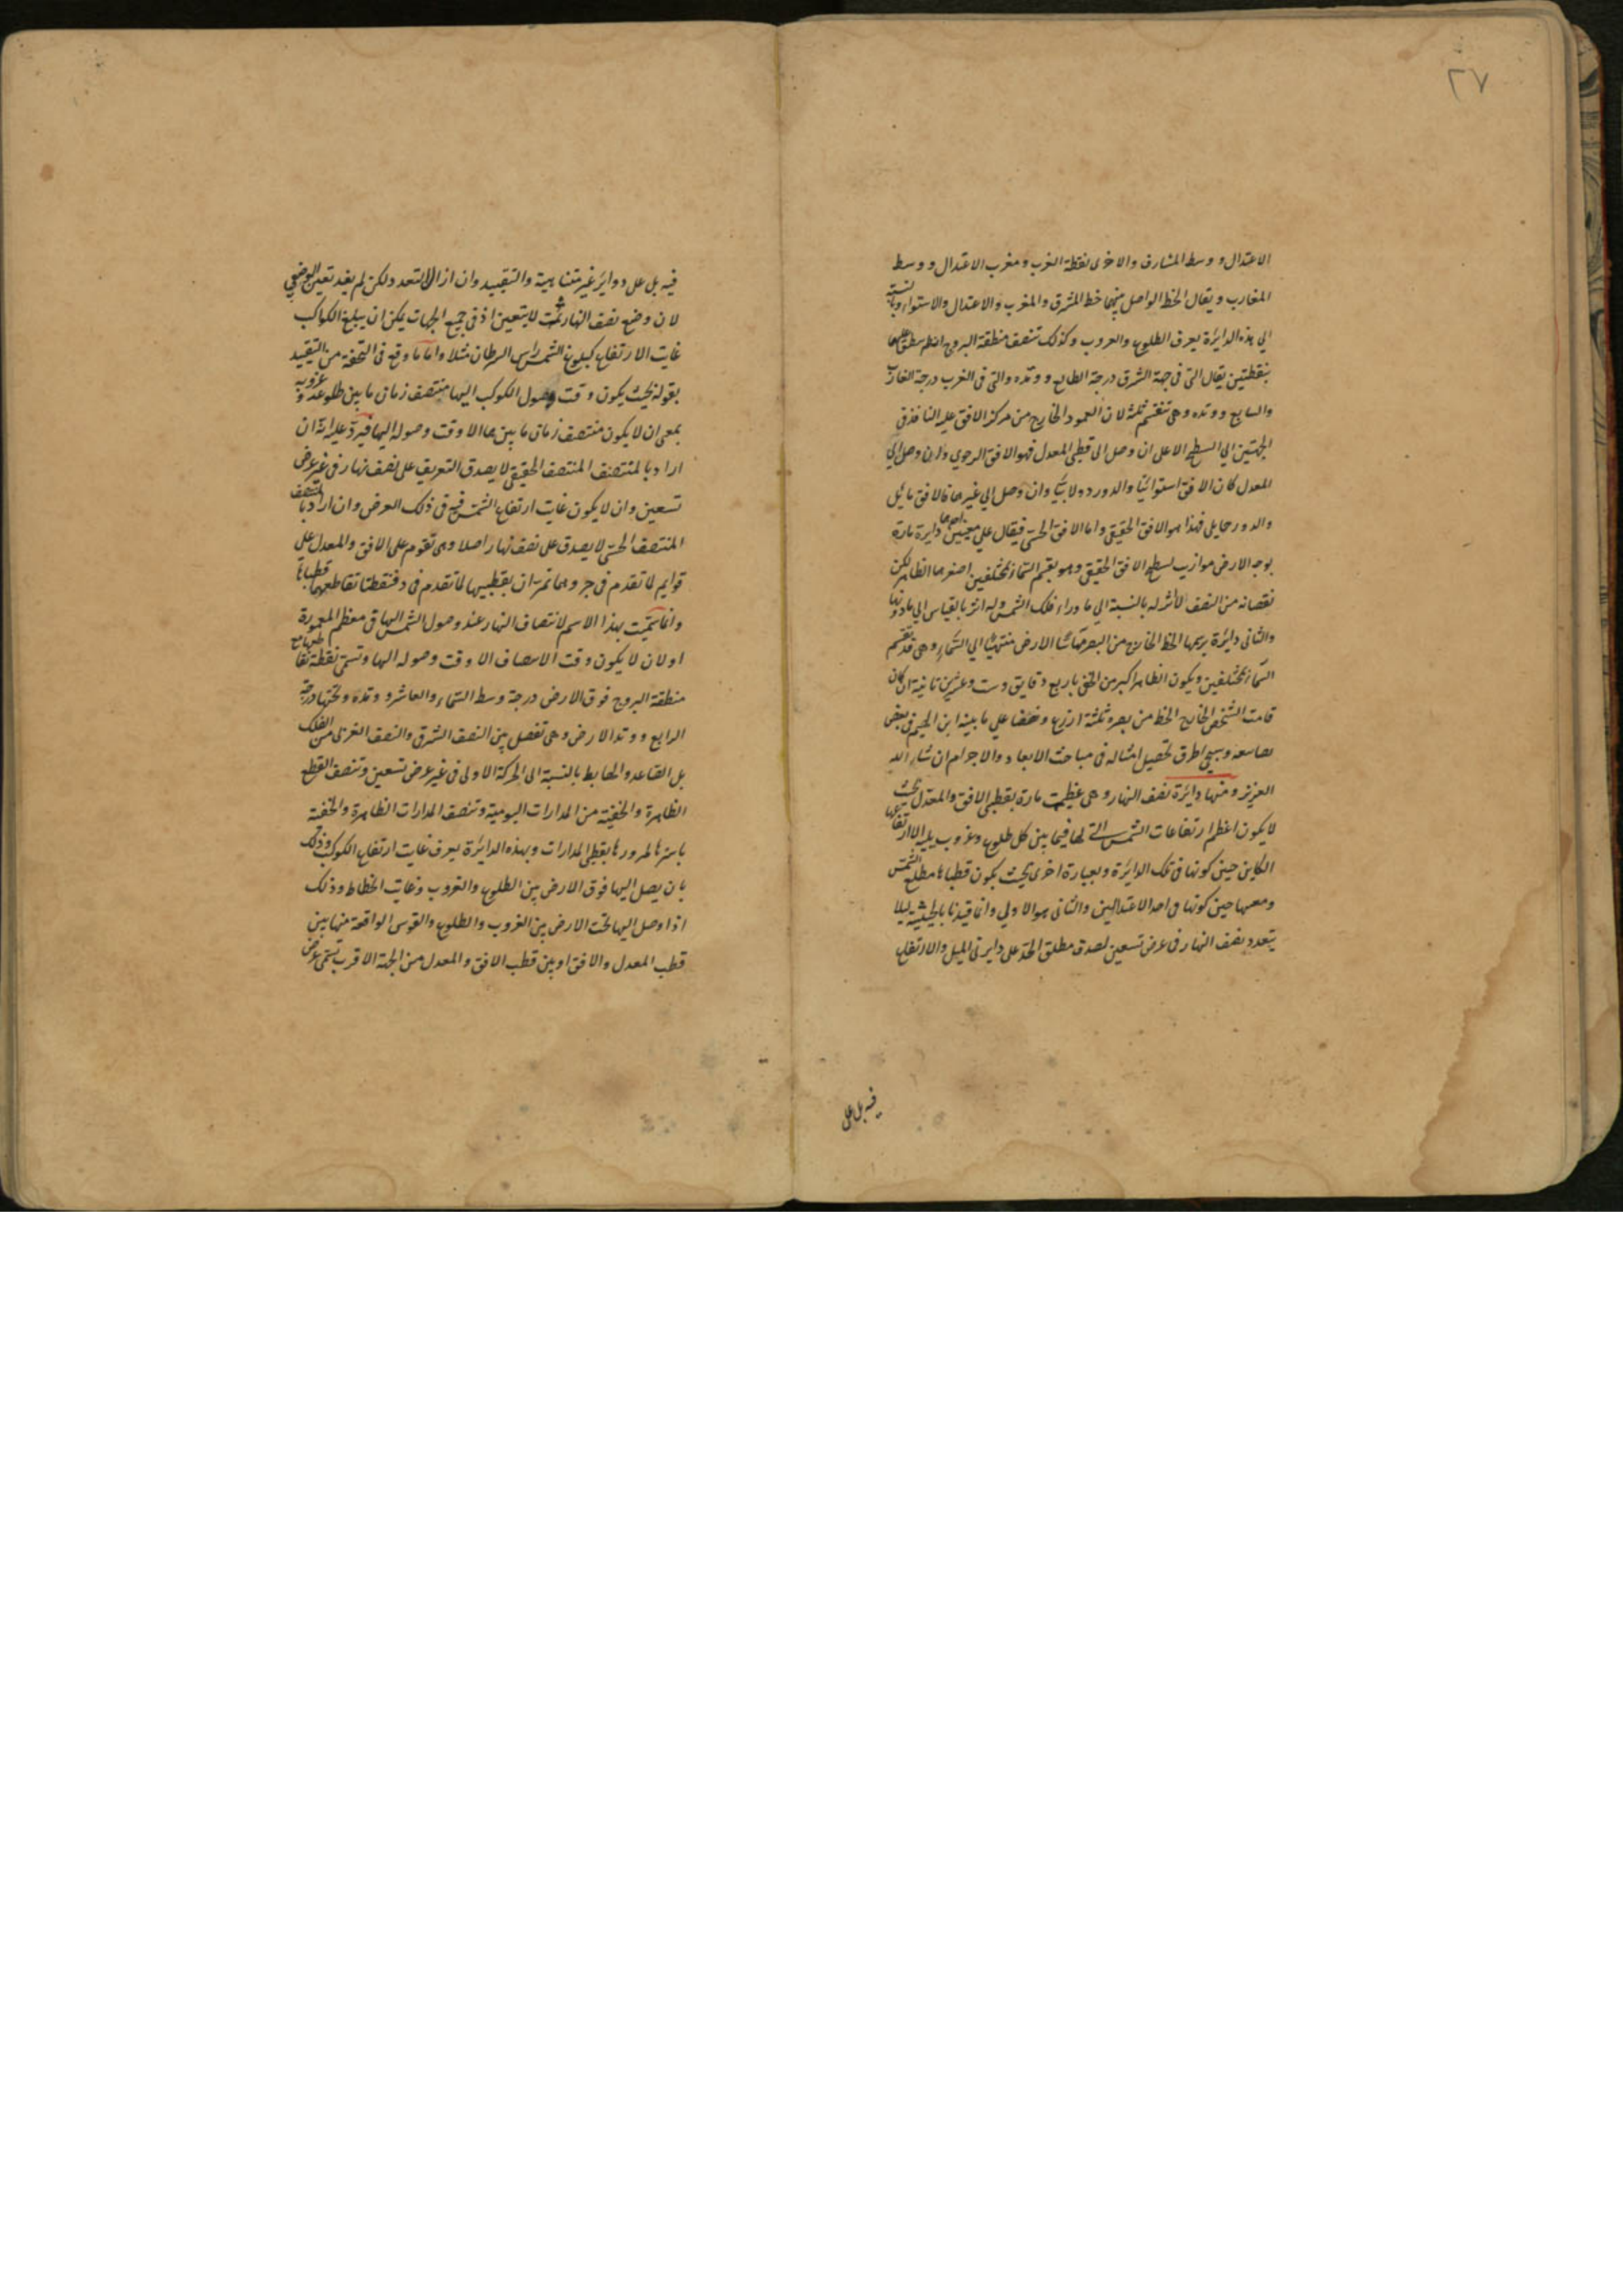 ٢٧
الاعتدال و وسط المشارق والاخرى نقطة الغرب و مغرب الاعتدال و وسط
المغارب و يقال الخط الواصل بينهما خط المشرق والمغرب والاعتدال والاستواء وبالنسبة
الى هذه الدايرة يعرف الطلوع والغروب وكذلك تنصف منطقة البروج
بنقطتين يقال التى فى جهة الشرق درجة الطالع و وتده والتى فى الغرب درجة الغارب
والسابع و وتده وهى تنقسم ثلثة لان العمود الخارج من مركز الافق عليه النافذ فى
الجهتين الى السطح الاعلى ان وصل الى قطبى المعدل فهو الافق الرحوي وان وصل الى
المعدل كان الافق استوائيا والدور دولابيا وان وصل الى غيرهما فالافق مائل
والدور حمايلى فهذا هو الافق الحقيقى واما الافق الحسى فيقال على معنيين احدهما دايرة مارة
بوجه الارض موازية لسطح الافق الحقيقى وهو يقسم السماء بمختلفين اصغرهما الظاهر لكن
نقصانه من النصف لا اثر له بالنسبة الى ما وراء فلك الشمس وله اثر بالقياس الى ما دونها
والثانى دايرة يرسمها الخط الخارج من البصر مماسا الارض منتهيا الى السماء وهى قد تقسم
السماء بمختلفين ويكون الظاهر اكبر من الخفى باربع دقايق وست وعشرين ثانية ان كان
قامت الشخص الخارج الخط من بصره ثلثة اذرع ونصفا على ما بينه ابن الهيثم فى بعض
وسيجئ طرق تحصيل امثاله فى مباحث الابعاد والاجرام ان شاء الله
العزيز ومنها دايرة نصف النهار وهى عظيمة مارة بقطبى الافق والمعدل بحيث
لا يكون اعظم ارتفاعات الشمس التى لها فيما بين كل طلوع وغروب يليه الا ارتفاعها
الكاين حين كونها فى تلك الدايرة وبعبارة اخرى بحيث يكون قطباها مطلع الشمس
ومغربها حين كونها فى احد الاعتدالين والثانى هو الاولى وانما قيدنا بالحيثية ليلا
يتعدد نصف النهار فى عرض تسعين لصدق مطلق الحد على دايرتى الميل والارتفاع
فيه بل على
فيه بل على دواير غير متناهية والتقييد وان ازال التعدد ولكن لم يفد تعين الوضعى
لان وضع نصف النهار ثمت لا يتعين اذ فى جميع الجهات يمكن ان يبلغ الكواكب
غايت الارتفاع كبلوغ الشمس راس السرطان مثلا واما ما وقع فى التحفة من التقييد
بقوله بحيث يكون وقت وصول الكوكب اليها منتصف زمان ما بين طلوعه وغروبه
بمعنى ان لا يكون منتصف زمان ما بينهما الا وقت وصوله اليها فيرد عليه انه ان
اراد بالمنتصف المنتصف الحقيقى لا يصدق التعريف على نصف نهار فى غير عرض
تسعين وان لا يكون غايت ارتفاع الشمس فيه فى ذلك العرض وان اراد بالمنتصف
المنتصف الحسى لا يصدق على نصف نهار اصلا وهى تقوم على الافق والمعدل على
قوايم لما تقدم فى جر وهما تمران بقطبيها لما تقدم فى د فنقطتا تقاطعهما قطباها
وانما سميت بهذا الاسم لانتصاف النهار عند وصول الشمس اليها فى معظم المعمورة
او لان لا يكون وقت الانتصاف الا وقت وصوله اليها وتسمى نقطة تقاطعها مع
منطقة البروج فوق الارض درجة وسط السماء والعاشر و وتده وتحتها درجة
الرابع و وتد الارض وهى تفصل بين النصف الشرقى والنصف الغربى من الفلك
بل الصاعد والهابط بالنسبة الى الحركة الاولى فى غير عرض تسعين وتنصف القطع
الظاهرة والخفية من المدارات اليومية وتنصف المدارات الظاهرة والخفية
باسرها لمرورها بقطبى المدارات وبهذه الدايرة يعرف غايت ارتفاع الكوكب وذلك
بان يصل اليها فوق الارض بين الطلوع والغروب وغايت انحطاطه وذلك
اذا وصل اليها تحت الارض بين الغروب والطلوع والقوس الواقعة منها بين
قطب المعدل والافق او بين قطب الافق والمعدل من الجهة الاقرب تسمى عرض